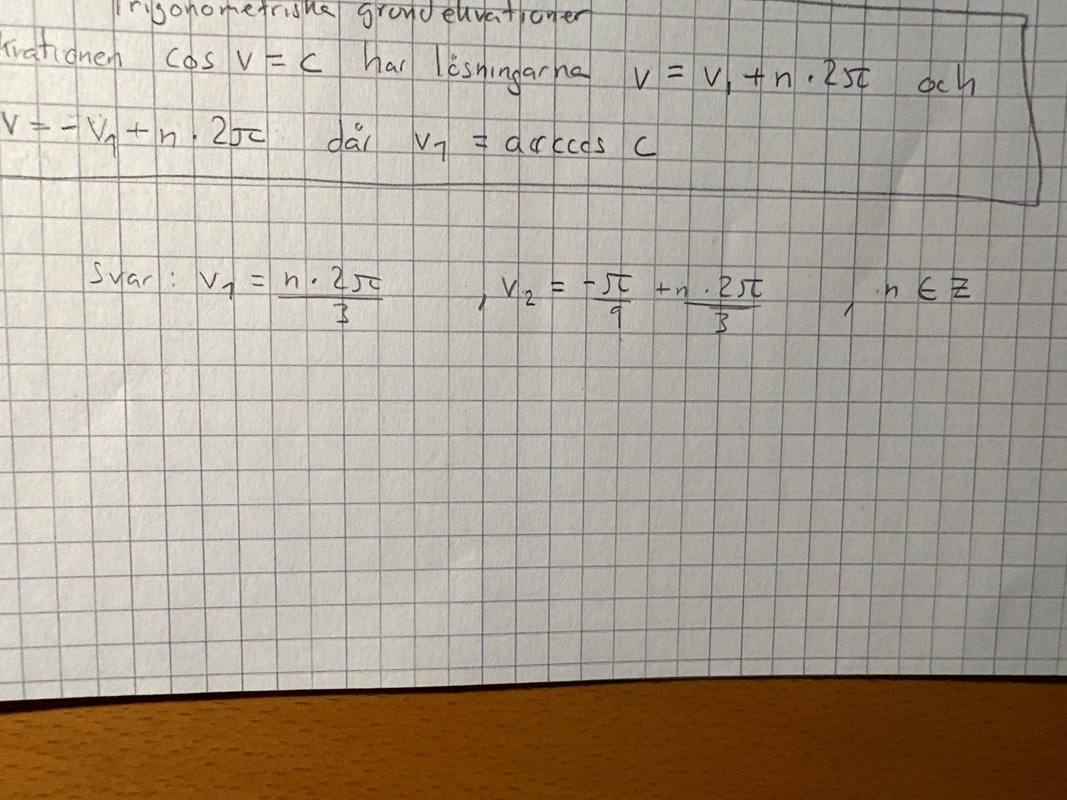 Trigonometriska grundekvationer
kvationen cos v = c har lösningarna v = v₁ + n · 2π och
v = -v₁ + n · 2π där v₁ = arccos c
Svar: v₁ = n · 2π / 3 , v₂ = -π / 9 + n · 2π / 3 , n ∈ Z